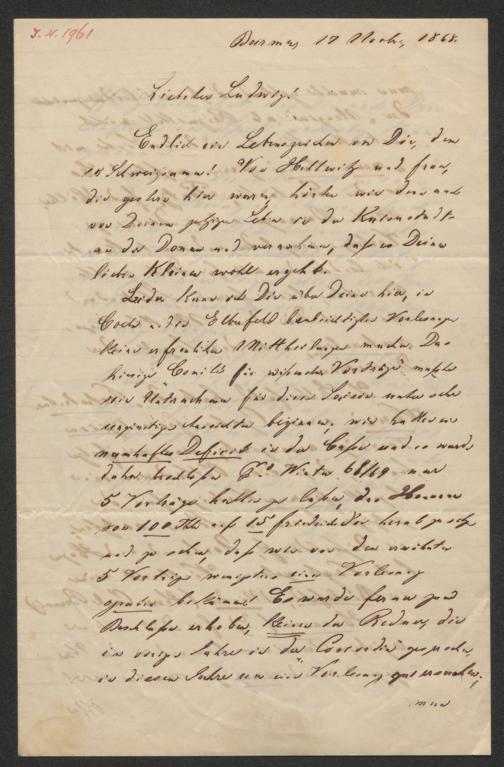 J. N. 1961
Barmen 17 Novbr 1868.
Liebster Ludwig!
Endlich ein Lebenszeichen von Dir, dem
Schweigsamen! Von Hellwitz und Frau,
die gestern hier waren, hörten wir denn auch
von Deinem jetzigen Leben in der Kaiserstadt
an der Donau und vernahmen, daß es Deinen
lieben Kleinen wohl ergeht.
Leider kann ich Dir über Deine hier, in
und in Elberfeld beabsichtigten Vorlesungen
keine erfreulichen Mittheilungen machen. Das
hiesige Comité für wissensch. Vorträge mußte
sein Unternehmen für diese Saison unter sehr
ungünstigen beginnen, wir hatten ein
namhaftes Deficit in der Casse und es wurde
daher beschlossen Winter 68/69 nur
5 Vorträge halten zu lassen, das Honorar
von 100 Thlr auf 15 Friedrichsdor herabzusetzen
und zu sehen, daß wir von den erwähnten
5 Vorträgen wenigstens eine Vorlesung
gratis bekämen! Es wurde ferner zum
Beschlusse erhoben, keinen der Redner, die
im vorigen Jahre in der Concordia gesprochen,
in diesem Jahre um eine Vorlesung zu ersuchen;
man